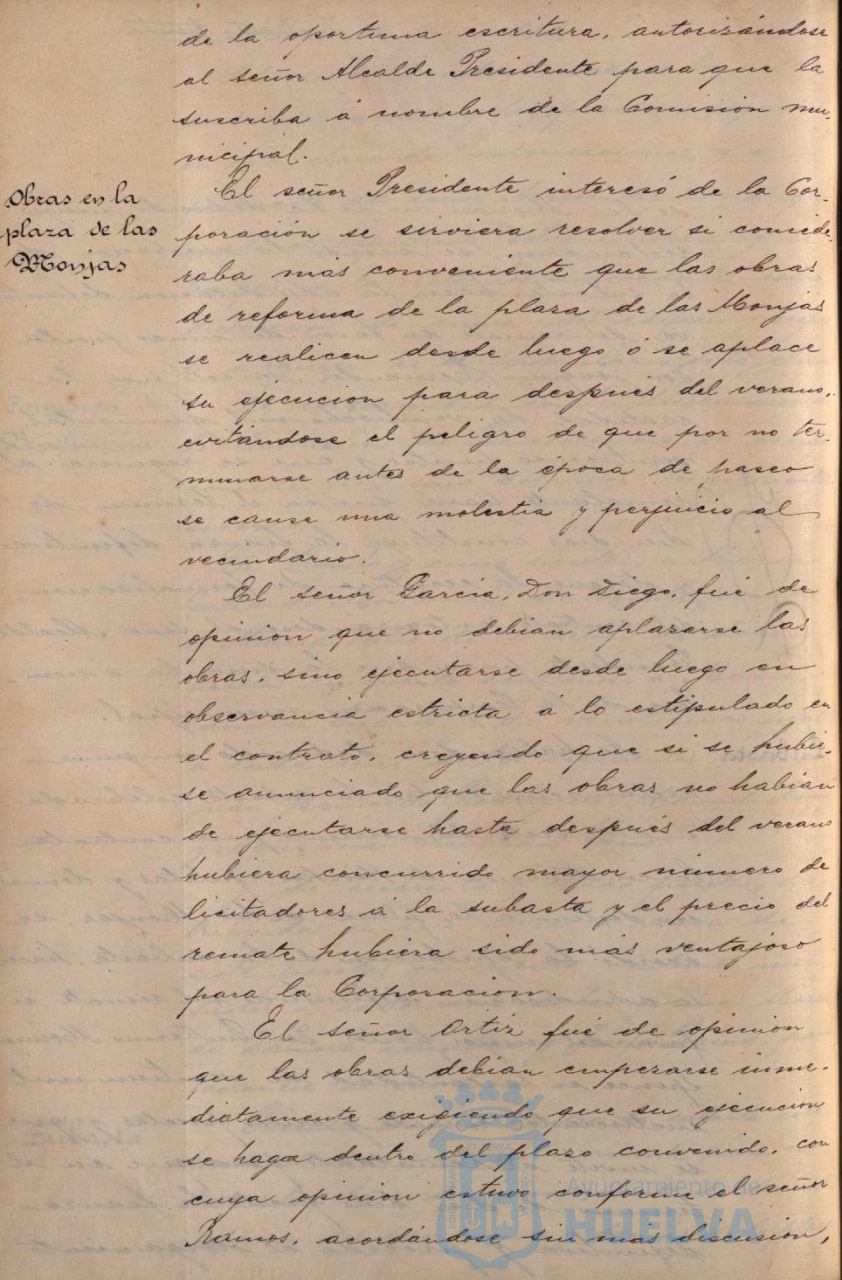 de la oportuna escritura, autorizándose
al señor Alcalde Presidente para que la
suscriba á nombre de la Comisión mu-
nicipal.
Obras en la
plaza de las
Monjas
El señor Presidente interesó de la Cor-
poración se sirviera resolver si conside-
raba más conveniente que las obras
de reforma de la plaza de las Monjas
se realicen desde luego ó se aplace
su ejecución para después del verano,
evitándose el peligro de que por no ter-
minarse antes de la época de paseo
se cause una molestia y perjuicio al
vecindario.
El señor García, Don Diego, fué de
opinion que no debian aplazarse las
obras, sino ejecutarse desde luego en
observancia estricta á lo estipulado en
el contrato, creyendo que si se hubie-
se anunciado que las obras no habian
de ejecutarse hasta después del verano
hubiera concurrido mayor número de
licitadores á la subasta y el precio del
remate hubiera sido más ventajoso
para la Corporacion.
El señor Ortiz fué de opinion
que las obras debian empezarse inme-
diatamente exigiendo que su ejecucion
se haga dentro del plazo convenido, con
cuya opinion estuvo conforme el señor
Ramos, acordándose sin mas discusion,
Ayuntamiento de
HUELVA